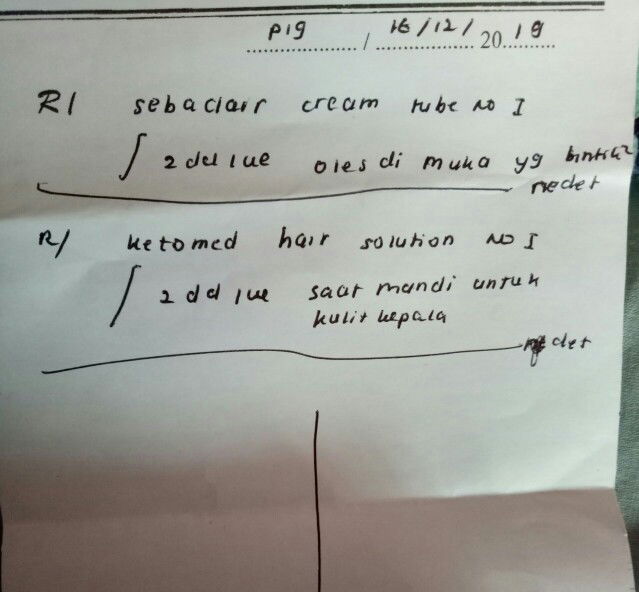 pig / 16/12/ 2019
R/ sebaclair cream tube no I
∫ 2 dd 1 ue oles di muka yg bintik²
nedet
R/ ketomed hair solution no I
∫ 2 dd 1 ue saat mandi untuk
kulit kepala
det